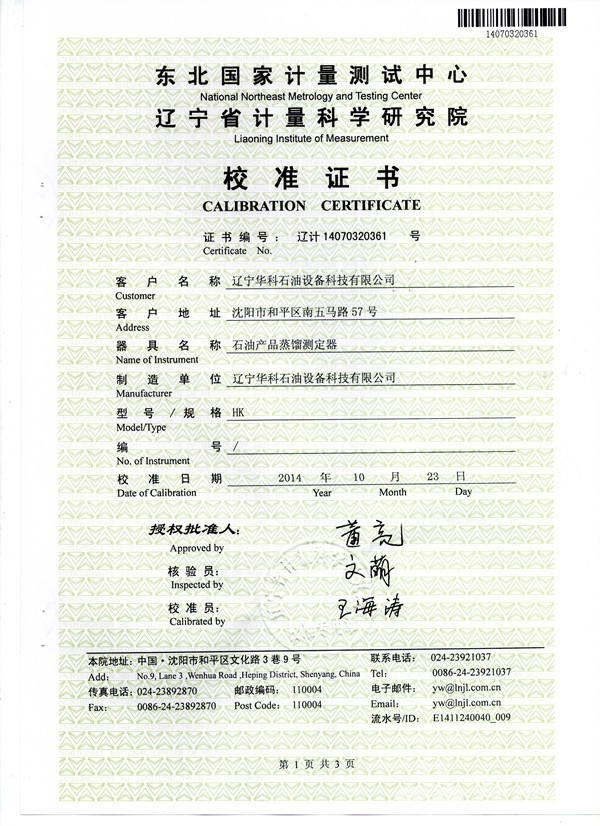 14070320361
东北国家计量测试中心
National Northeast Metrology and Testing Center
辽宁省计量科学研究院
Liaoning Institute of Measurement
校准证书
CALIBRATION CERTIFICATE
证书编号: 辽计14070320361 号
Certificate No.
客户名称 辽宁华科石油设备科技有限公司
Customer
客户地址 沈阳市和平区南五马路57号
Address
器具名称 石油产品蒸馏测定器
Name of Instrument
制造单位 辽宁华科石油设备科技有限公司
Manufacturer
型号/规格 HK
Model/Type
编号 /
No. of Instrument
校准日期 2014 年 10 月 23 日
Date of Calibration Year Month Day
授权批准人:
Approved by
核验员: 文萌
Inspected by
校准员: 王海涛
Calibrated by
本院地址: 中国·沈阳市和平区文化路3巷9号 联系电话: 024-23921037
Add: No.9, Lane 3 ,Wenhua Road ,Heping District, Shenyang, China Tel: 0086-24-23921037
传真电话: 024-23892870 邮政编码: 110004 电子邮件: yw@lnjl.com.cn
Fax: 0086-24-23892870 Post Code: 110004 Email: yw@lnjl.com.cn
流水号/ID: E1411240040_009
第1页共3页